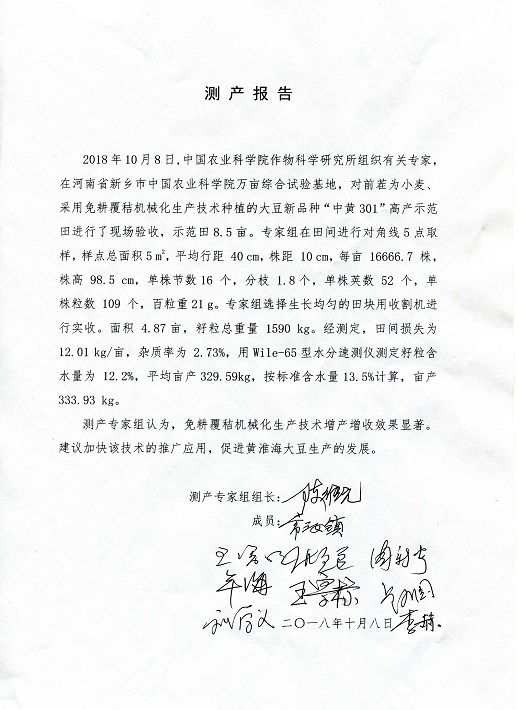 测产报告
2018年10月8日,中国农业科学院作物科学研究所组织有关专家，
在河南省新乡市中国农业科学院万亩综合试验基地，对前茬为小麦、
采用免耕覆秸机械化生产技术种植的大豆新品种“中黄301”高产示范
田进行了现场验收，示范田8.5亩。专家组在田间进行对角线5点取
样，样点总面积5㎡，平均行距40cm，株距10cm，每亩16666.7株，
株高98.5cm，单株节数16个，分枝1.8个，单株荚数52个，单
株粒数109个，百粒重21g。专家组选择生长均匀的田块用收割机进
行实收。面积4.87亩，籽粒总重量1590kg。经测定，田间损失为
12.01kg/亩，杂质率为2.73%，用Wile-65型水分速测仪测定籽粒含
水量为12.2%，平均亩产329.59kg，按标准含水量13.5%计算，亩产
333.93kg。
测产专家组认为，免耕覆秸机械化生产技术增产增收效果显著。
建议加快该技术的推广应用，促进黄淮海大豆生产的发展。
测产专家组组长：
成员：
年海
二〇一八年十月八日